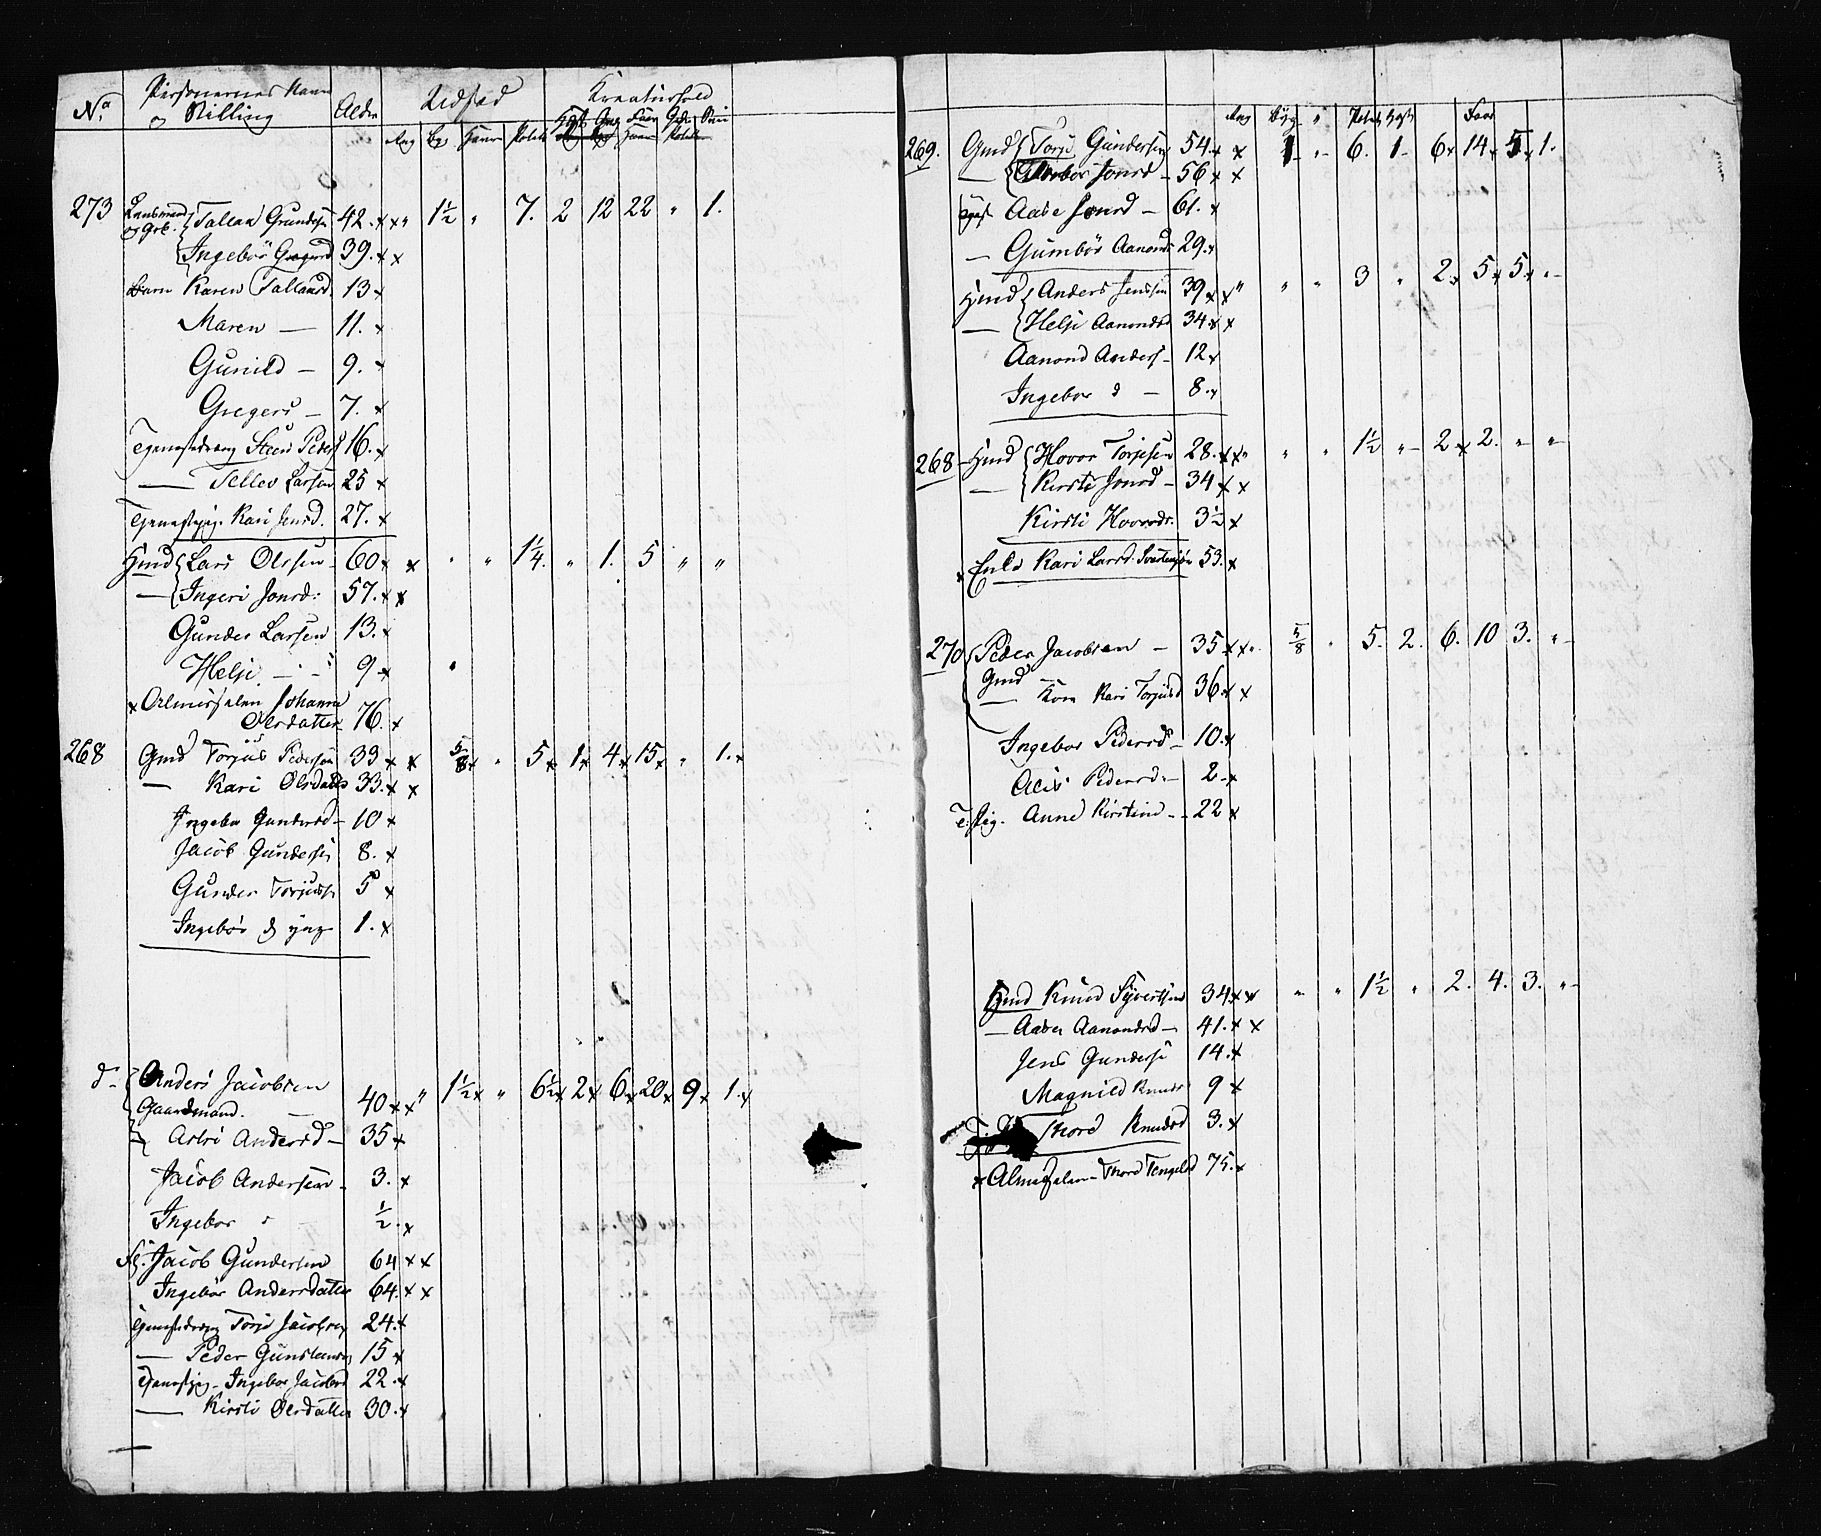 No. Personernes Navn Alder Udsæd Kreaturhold
og Stilling
Rug Byg Havre Potet
273 Lensmand Tallak Gundersen 42. x x " 1½ " 7. 2 12 22 " 1.
og Grb. Ingebör Gregersd 39. x x
Barn Karen Tallaksd. 13 x
Maren — 11. x
Gunild — 9. x
Gregers — 7. x
Tjenestedreng Steen Peders 16. x
— Tellev Larsen 25 x
Tjenestpig. Kari Jensd. 27. x
Hmd Lars Olssen 60 x x " " 1¼. " 1. 5 " "
— Ingeri Jonsd: 57. x x
Gunder Larsen 13. x
Helje — " 9 x
x Almisselem Johanne
Olsdatter 76. x
268 Gmd Torjus Pedersen 33 x x 5/8 x " 5 x 1 x 4 x 15 x " 1. x
— Kari Olsdatter 33. x x
Ingebor Gundersd — 10 x
Jacob Gundersen 8. x
Gunder Torjuss 5 x
Ingebör d yng 1. x
d — Anders Jacobsen
Gaardmand. — 40 x x " 1½ x " 6½ x 2 x 6 x 20 x 9 x 1. x
Aslri Andersd — 35 x
Jacob Andersen — 3. x
Ingebor d — ½. x
Jacob Gundersen 64 x x
Ingebör Andersdatter 64. x x
Tjenestedreng Torje Jacobsen 24. x
— Peder Gunstensen 15 x
Tjenestpig — Ingebor Jacobsd 22. x
— Kirsti Olsdatter 30. x
Rug Byg " Potet Hest Faar
269. Gmd Torje Gundersen 54. x x 1 — " 6. 1 — 6 x 14 x 5 x 1.
— Jonsd — 56 x x
Aase Jonsd — 61. x
— Gumbör Aanonds 29. x
Hmd Anders Jenssen 39 x x " " " 3 " 2 x 5 x 5 x " —
— Helje Aanondsd 34. x x
Aanond Anders — 12 x
Ingebor d — 8. x
268 — Hmd Hovor Torjesen 28. x x " " " 1½ " — 2 x 2. " "
— Kirsti Jonsd — 34 x x
Kirsti Hovorsdr. 3½ x
x Enke Kari Larsd. 53. x
270 Peder Jacobsen — 35 x x " 5/8 " 5. 2. 6. 10 3. " —
Gmd
— Kone Kari Torjusd 36. x x
Ingebor Pedersd — 10. x
Pedersd — 2 — x
T. Pig. Anne Kirstine — 22 x
Hmd Knud Syvertsen 34. x x " " 1½ " 2. 4. 3. " —
— Aase Aanondsd — 41. x x
Jens Gunderse 14. x
Magnild Knuds 9 x
Thore Knudsd 3. x
x Almisselem — Thore Tengelsd 75. x